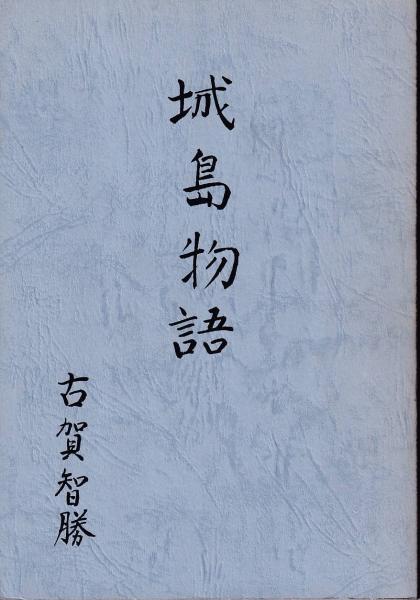 城島物語
古賀智勝